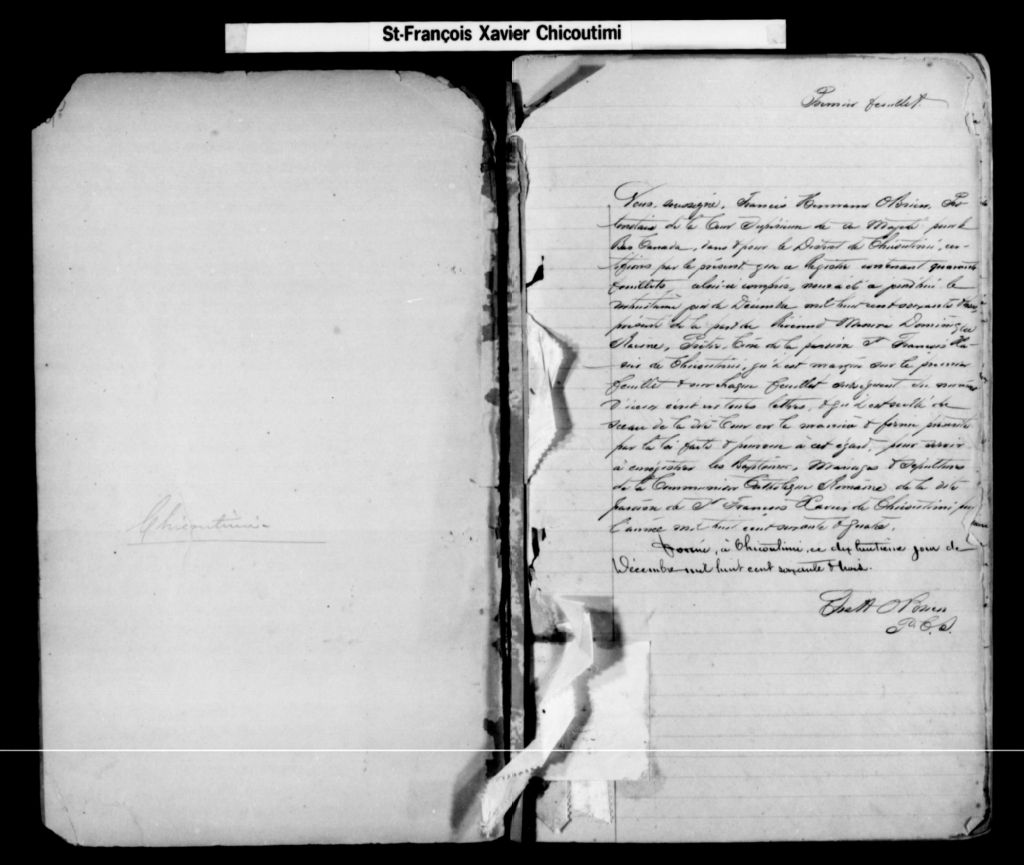 St-François Xavier Chicoutimi
Chicoutimi
Premier feuillet
Nous, soussigné, Francis Hermann O'Brien, Pro
tonotaire de la Cour Supérieure de sa Majesté pour le
Bas Canada, dans & pour le District de Chicoutimi, cer-
tifions par le présent que ce Registre contenant quarante
feuillets, celui-ci compris, nous a été aujourd'hui le
jour de Décembre mil huit cent soixante &
présenté de la part du Révérend Messire Dominique
Racine, Prêtre, Curé de la paroisse St François Xa-
vier de Chicoutimi, qu'il est marqué sur le premier
feuillet & sur chaque feuillet subséquent du numéro
d'iceux écrit en toutes lettres, & qu'il est scellé du
sceau de la dite Cour en la manière & forme
par la loi faite & pourvue à cet égard, pour servir
à enregistrer les Baptêmes, Mariages & Sépultures
de la Communion Catholique Romaine de la dite
paroisse de St François Xavier de Chicoutimi
l'année mil huit cent soixante & quatre.
Donné, à Chicoutimi, ce dix huitième jour de
Décembre mil huit cent soixante & trois.
O'Brien
P. C. S.